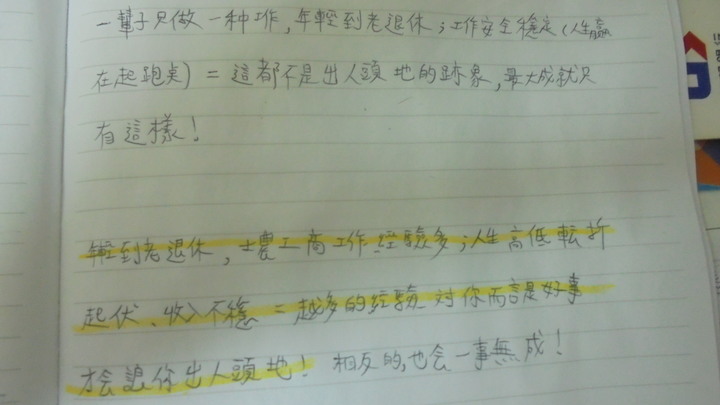 一輩子只做一种工作,年輕到老退休;工作安全穩定(人生贏
在起跑矣)=這都不是出人頭地的跡象,最大成就只
有這樣!
年輕到老退休,士農工商工作経驗多;人生高低転折
起伏、收入不穩=越多的経驗对你而言是好事
才会讓你出人頭地!相反的,也会一事無成!